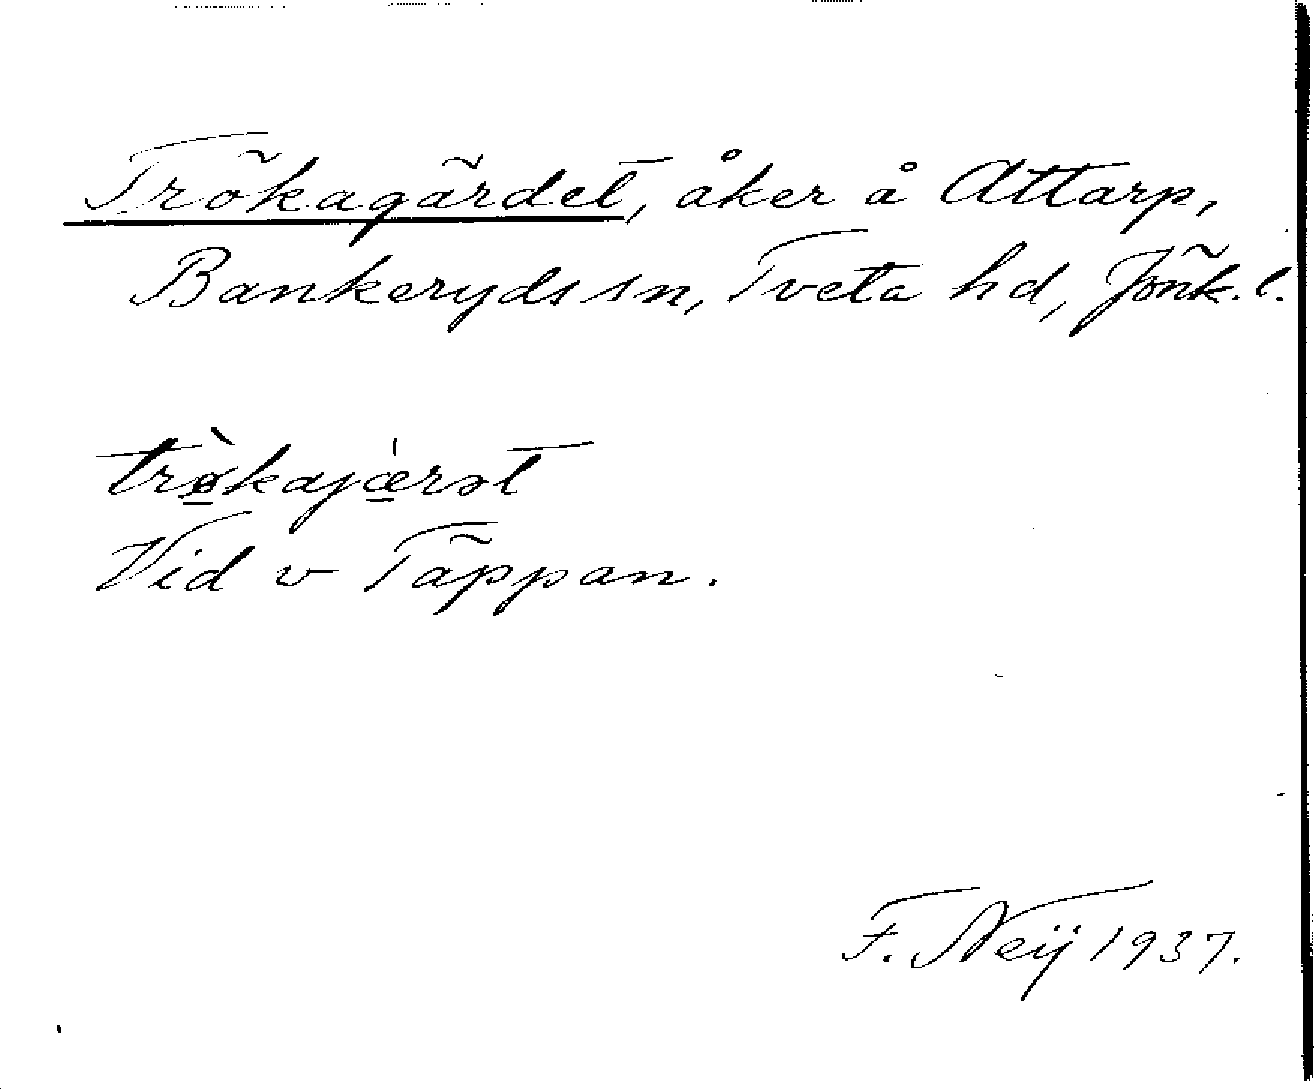 Trökagärdet, åker å Attarp,
Bankeryds sn, Tveta hd, Jönk. l.
trø̀kajæ̀rət
Vid v Täppan.
F. Neij 1937.